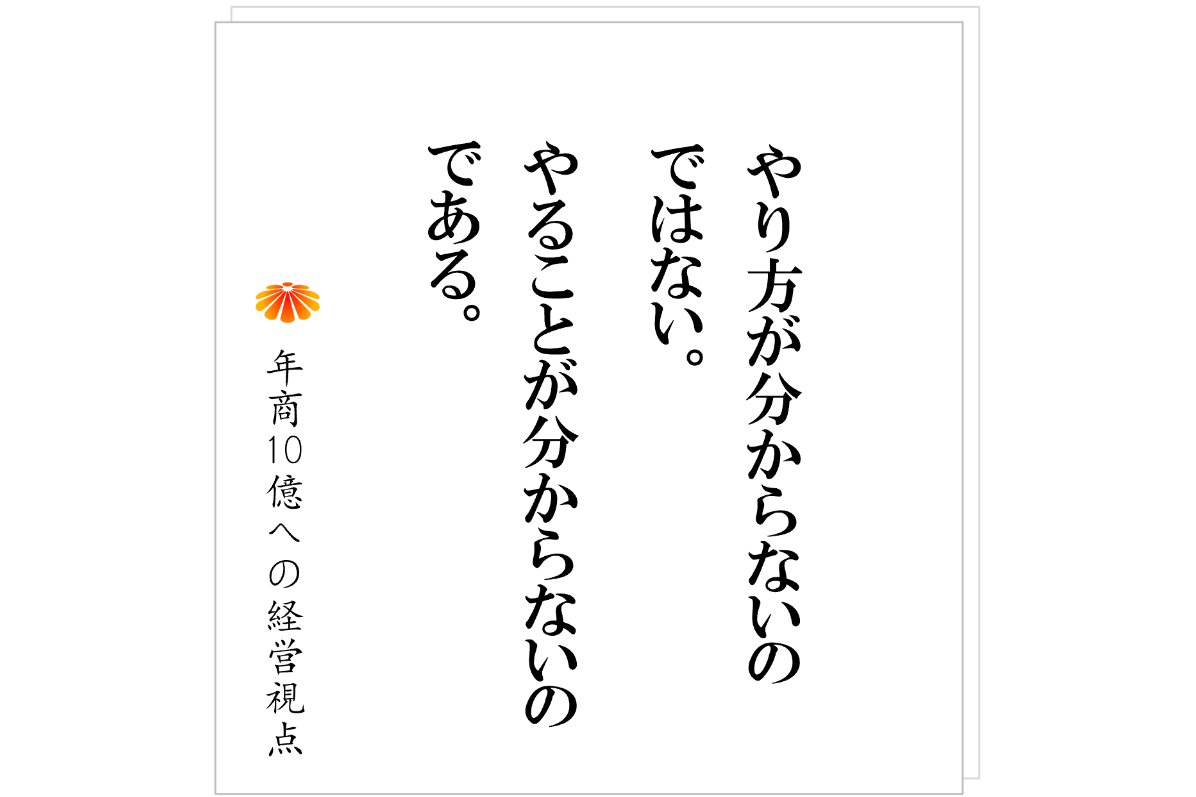 やり方が分からないの
ではない。
やることが分からないの
である。
年商10億への経営視点